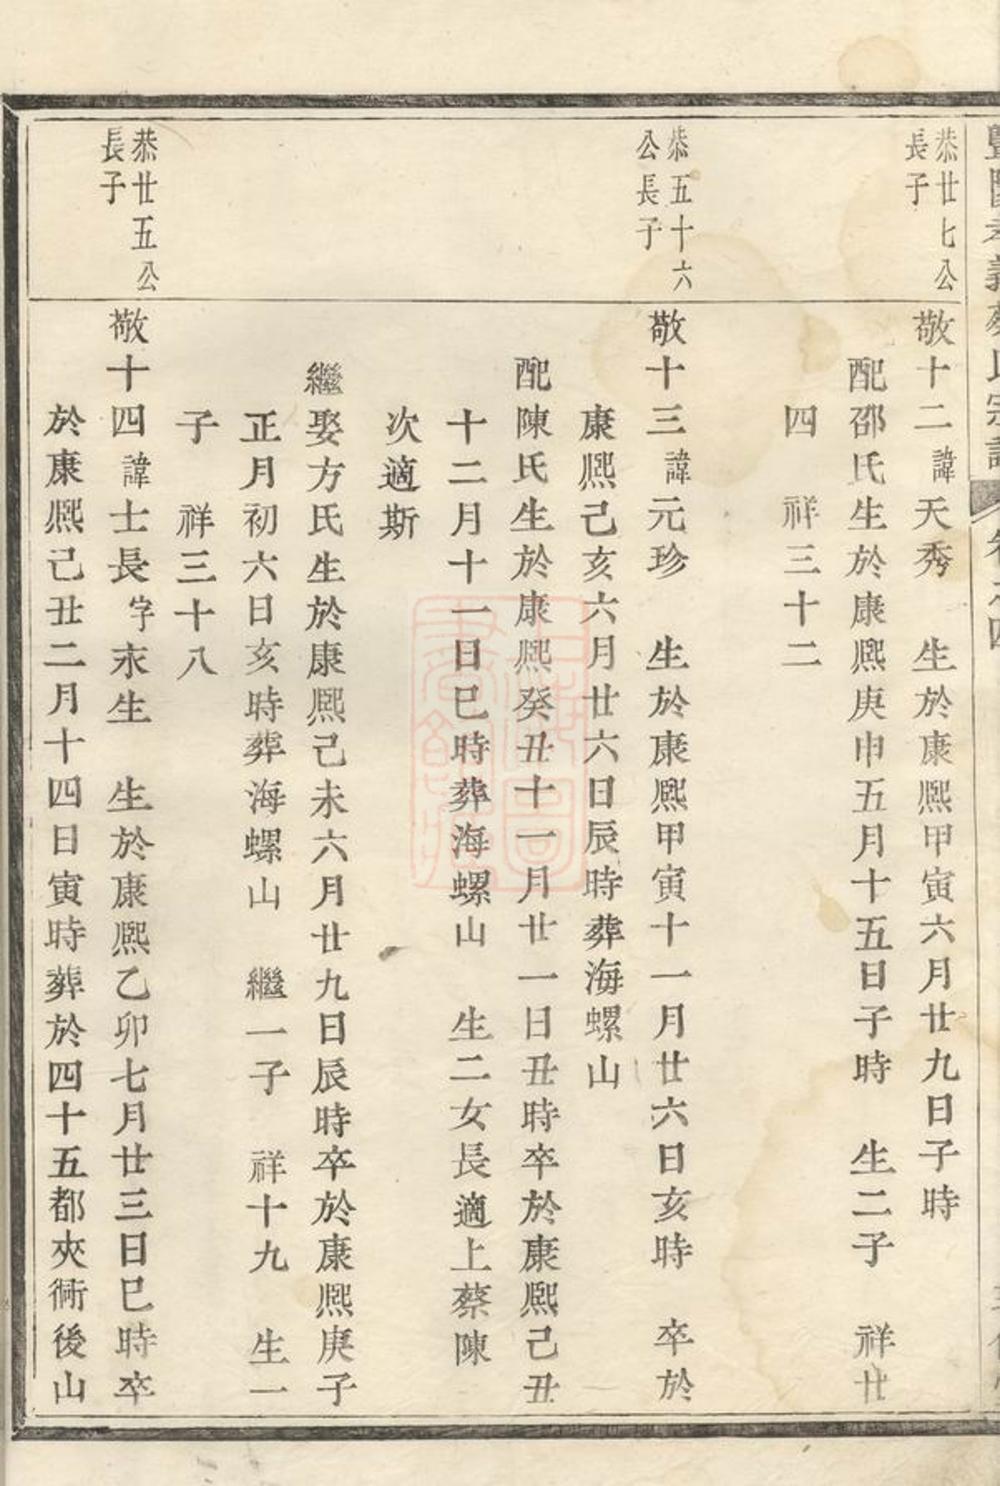 恭廿七公
長子
敬十二諱天秀　生於康熙甲寅六月廿九日子時
配邵氏生於康熙庚申五月十五日子時　生二子　祥廿
四　祥三十二
恭五十六
公長子
敬十三諱元珍　生於康熙甲寅十一月廿六日亥時　卒於
康熙己亥六月廿六日辰時葬海螺山
配陳氏生於康熙癸丑十一月廿一日丑時卒於康熙己丑
十二月十一日巳時葬海螺山　生二女長適上蔡陳
次適斯
繼娶方氏生於康熙己未六月廿九日辰時卒於康熙庚子
正月初六日亥時葬海螺山　繼一子　祥十九　生一
子　祥三十八
恭廿五公
長子
敬十四諱士長字永生　生於康熙乙卯七月廿三日巳時卒
於康熙己丑二月十四日寅時葬於四十五都夾衕後山